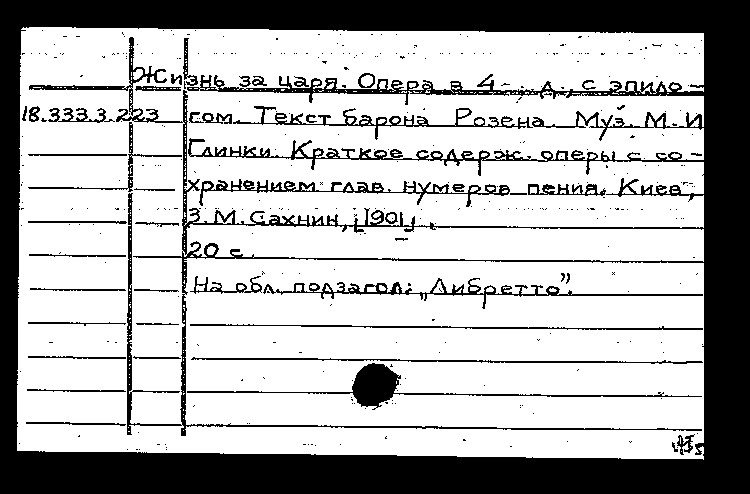 Жизнь за царя. Опера в 4- д., с эпило-
18.333.3.223 гом. Текст барона Розена. Муз. М. И
Глинки. Краткое содерж. оперы с со-
хранением глав. нумеров пения. Киев,
З. М. Сахнин, [1901].
20 с.
На обл. подзагол: „Либретто”.